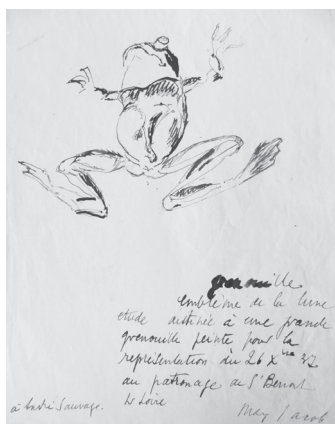 grenouille
emblème de la lune
etude destinée à une grande
grenouille peinte pour la
représentation du 26 X bre 37
au patronage de St Benoit
s/ Loire
à André Sauvage.
Max Jacob